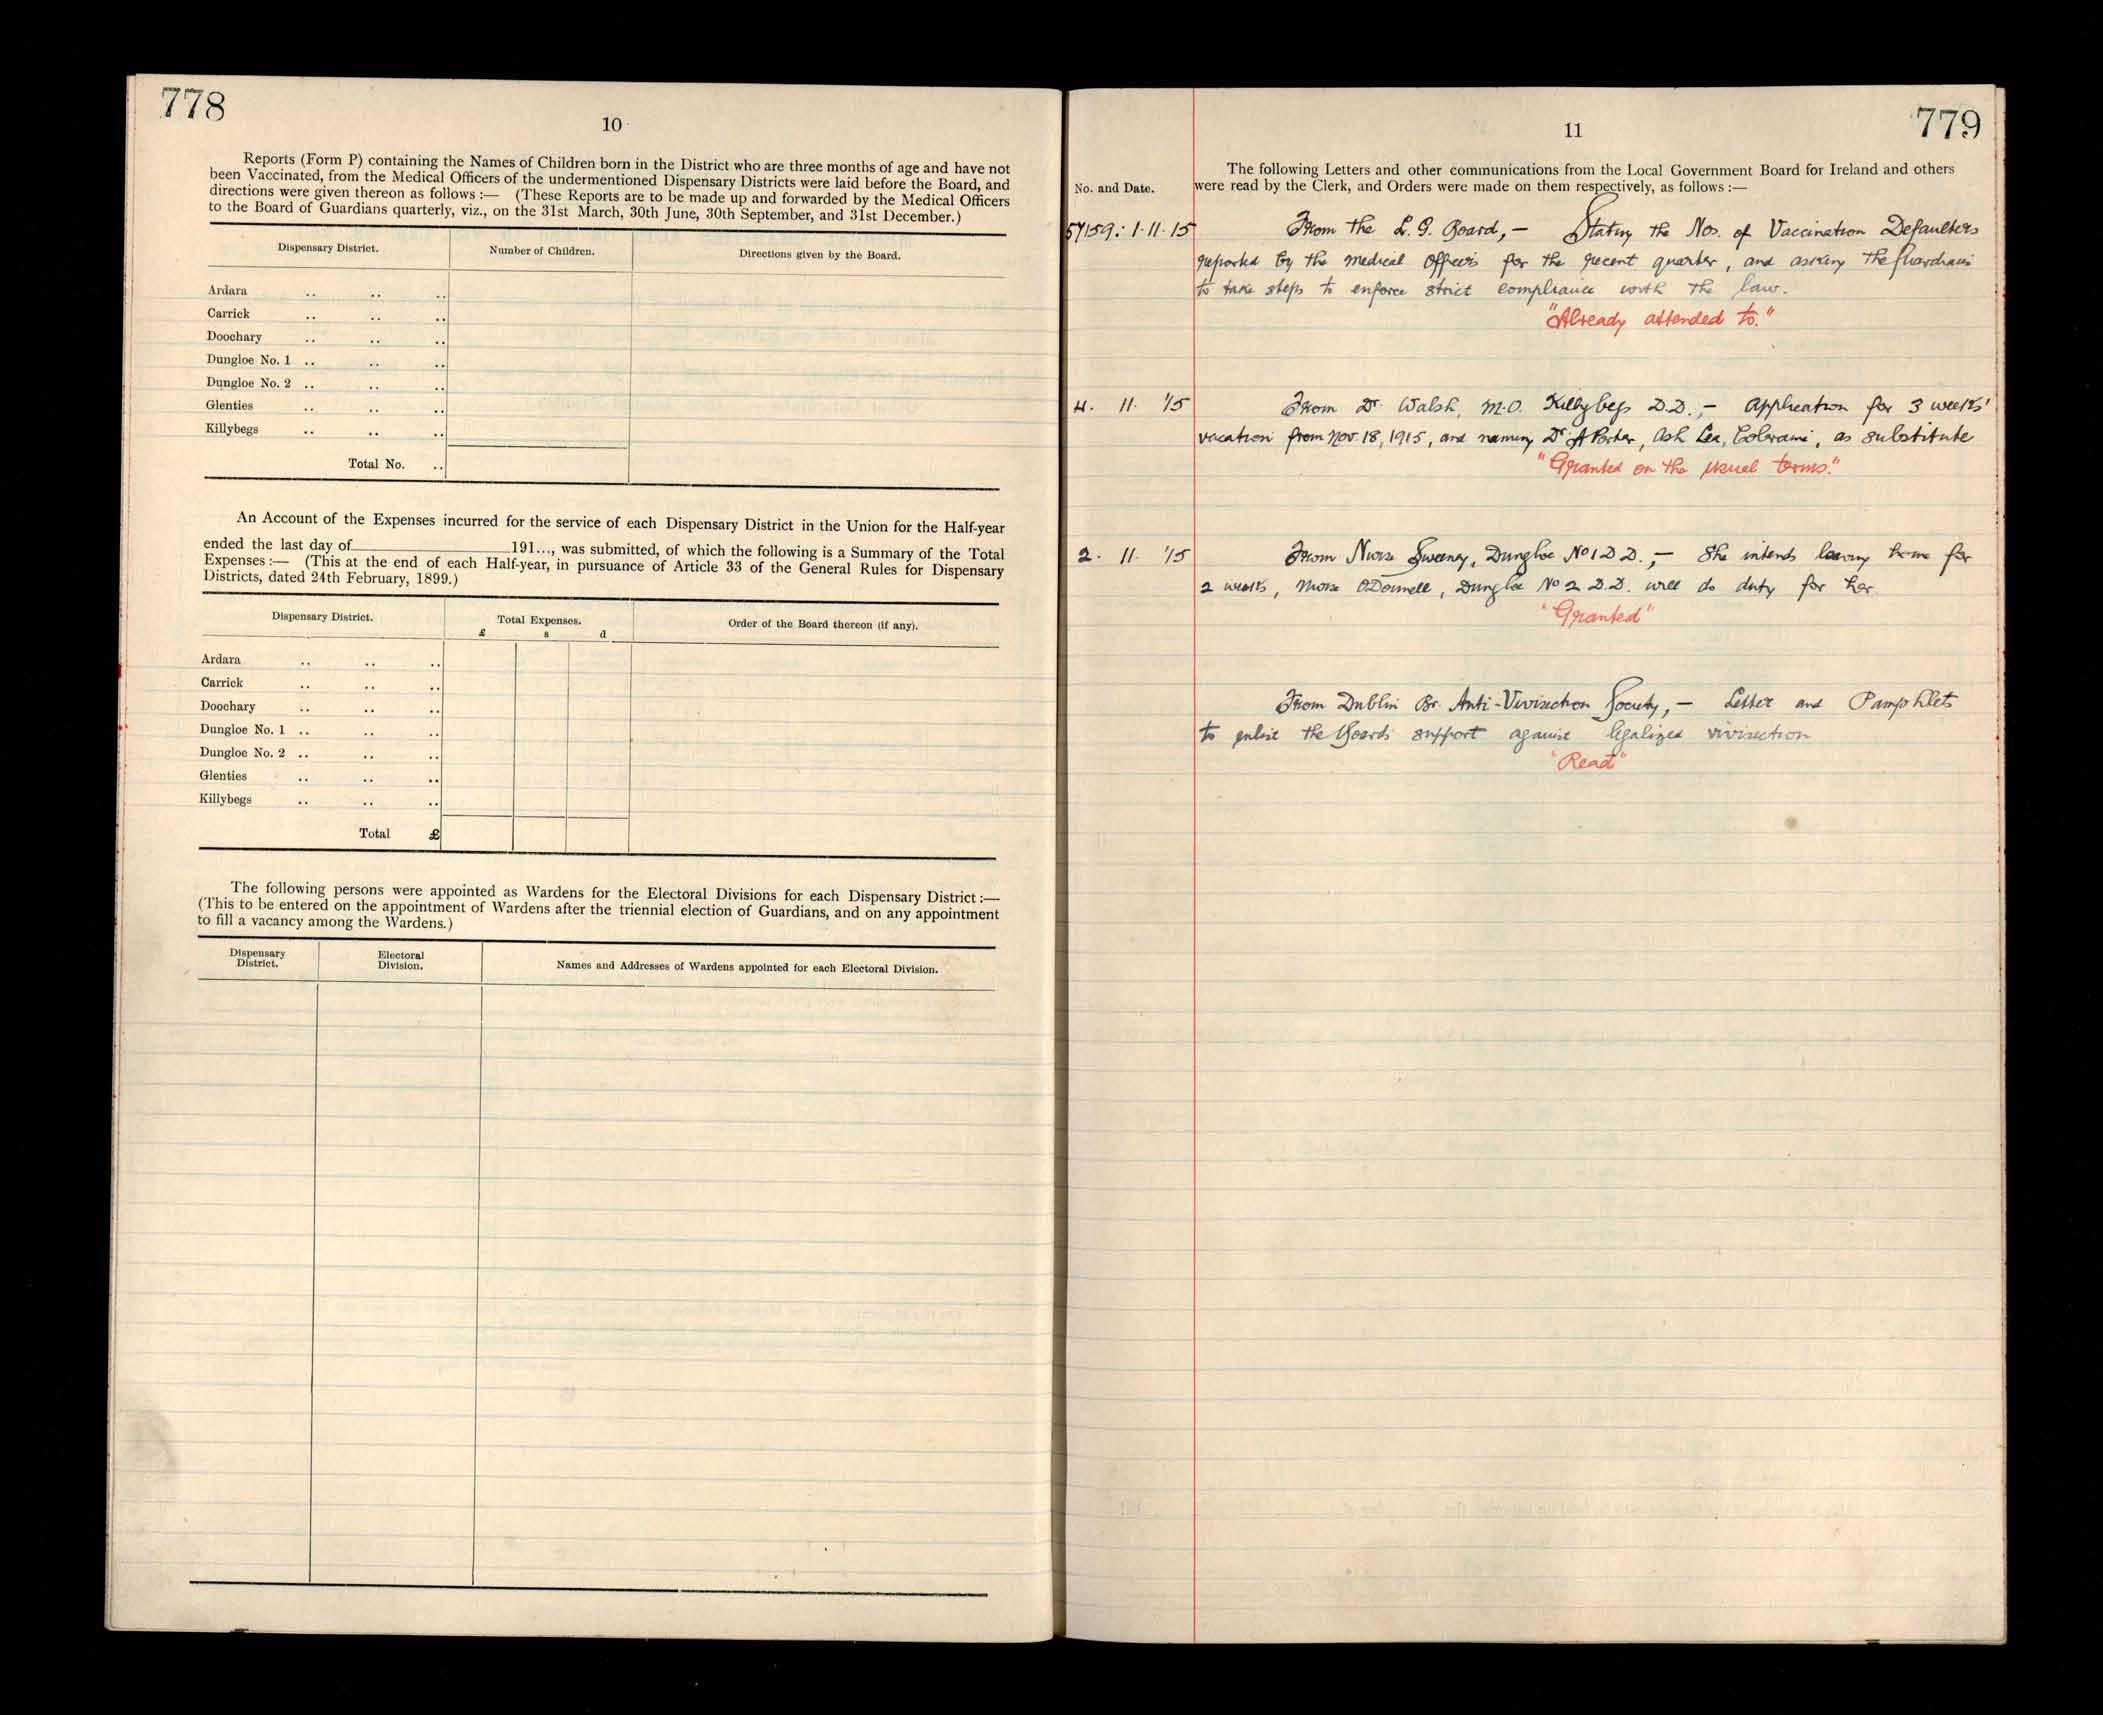 778
10
Reports (Form P) containing the Names of Children born in the District who are three months of age and have not
been Vaccinated, from the Medical Officers of the undermentioned Dispensary Districts were laid before the Board, and
directions were given thereon as follows :— (These Reports are to be made up and forwarded by the Medical Officers
to the Board of Guardians quarterly, viz., on the 31st March, 30th June, 30th September, and 31st December.)
Dispensary District. Number of Children. Directions given by the Board.
Ardara .. .. ..
Carrick .. .. ..
Doochary .. .. ..
Dungloe No. 1 .. .. ..
Dungloe No. 2 .. .. ..
Glenties .. .. ..
Killybegs .. .. ..
Total No. ..
An Account of the Expenses incurred for the service of each Dispensary District in the Union for the Half-year
ended the last day of 191..., was submitted, of which the following is a Summary of the Total
Expenses :— (This at the end of each Half-year, in pursuance of Article 33 of the General Rules for Dispensary
Districts, dated 24th February, 1899.)
Dispensary District. Total Expenses. Order of the Board thereon (if any).
£ s d
Ardara .. .. ..
Carrick .. .. ..
Doochary .. .. ..
Dungloe No. 1 .. .. ..
Dungloe No. 2 .. .. ..
Glenties .. .. ..
Killybegs .. .. ..
Total £
The following persons were appointed as Wardens for the Electoral Divisions for each Dispensary District :—
(This to be entered on the appointment of Wardens after the triennial election of Guardians, and on any appointment
to fill a vacancy among the Wardens.)
Dispensary District. Electoral Division. Names and Addresses of Wardens appointed for each Electoral Division.
11
779
The following Letters and other communications from the Local Government Board for Ireland and others
No. and Date. were read by the Clerk, and Orders were made on them respectively, as follows :—
57159: 1·11·15 From the L. G. Board, — Stating the Nos. of Vaccination Defaulters
reported by the Medical Officers for the recent quarter, and asking the Guardians
to take steps to enforce strict compliance with the law.
"Already attended to."
4. 11. '15 From Dr Walsh, M.O. Killybegs D.D., — Application for 3 weeks'
vacation from Nov. 18, 1915, and naming Dr A Porter, Ash Lea, Coleraine, as substitute
"Granted on the usual terms."
2. 11. '15 From Nurse Sweeney, Dungloe No 1 D D., — She intends leaving home for
2 weeks, Nurse O'Donnell, Dungloe No 2 D.D. will do duty for her.
"Granted"
From Dublin Br. Anti-Vivisection Society, — Letter and Pamphlets
to enlist the Boards support against legalized vivisection
"Read"